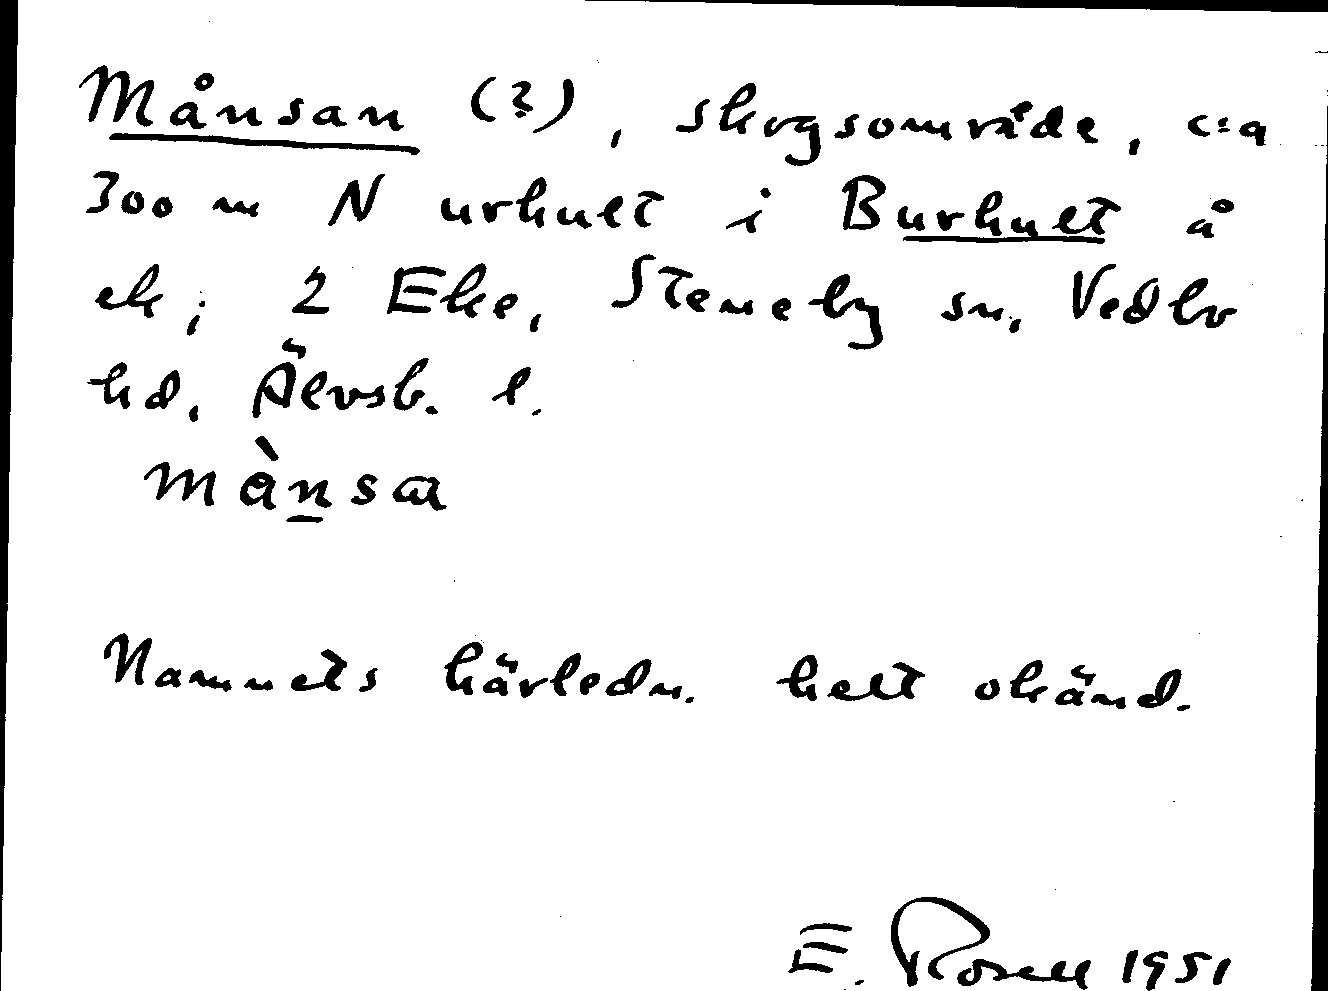 Månsan (?), skogsområde, c:a
300 m N urhult i Burhult å
ek; 2 Eke, Steneby sn, Vedbo
hd, Älvsb. l.
mànsaa
Namnets härledn. helt okänd.
E. Rosell 1951